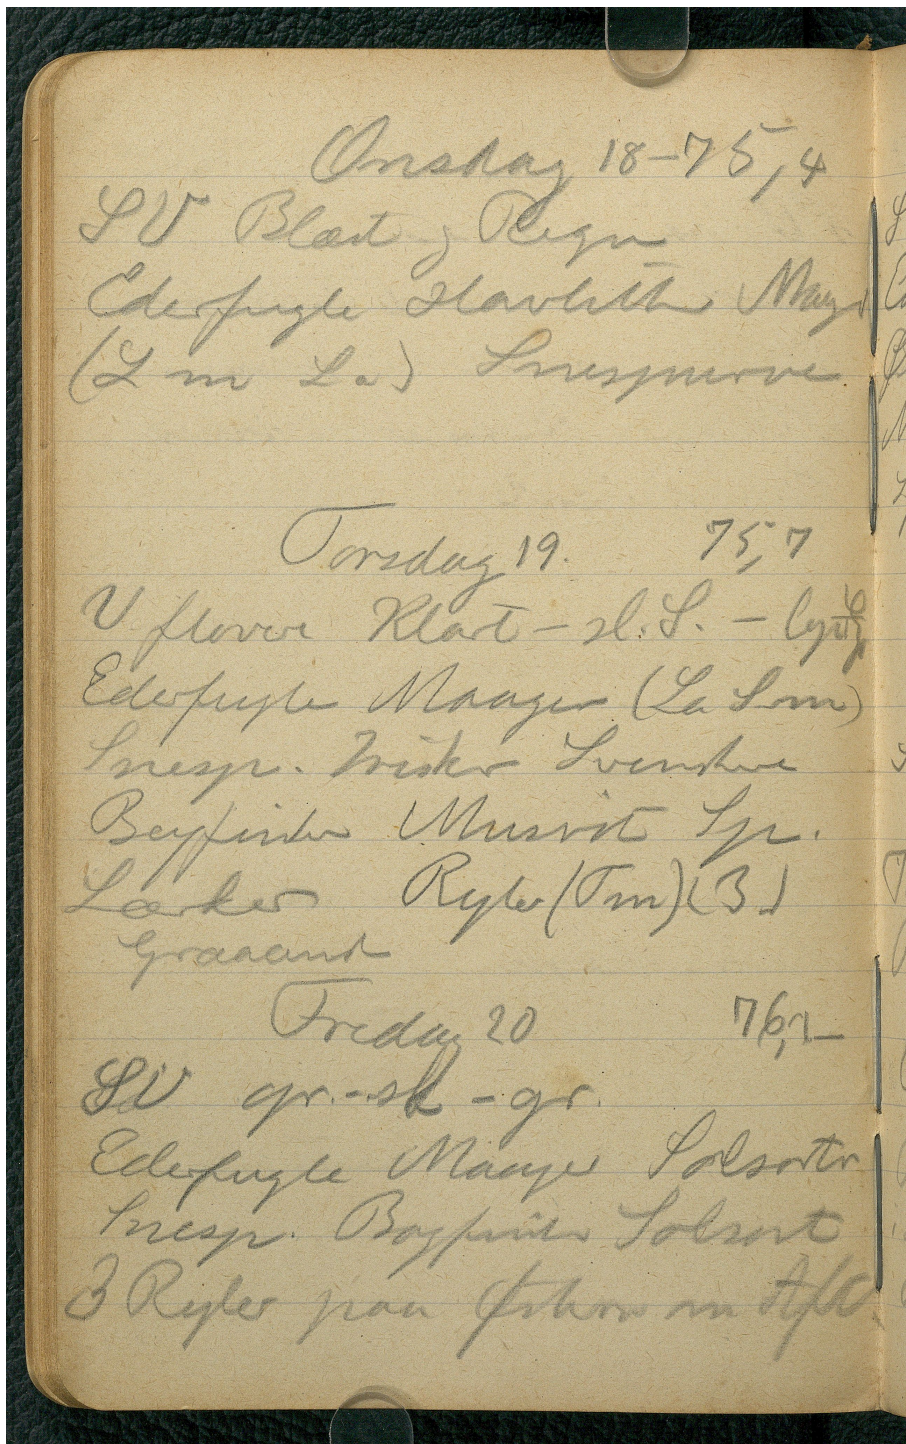 Onsdag 18 – 75,4
SV Blæst og Regn
Ederfugle Havlitter Maager
(L m La) Snespurve
Torsdag 19. 75,7
V flovere Klart – sl. S. –
Ederfugle Maager (La S m)
Snesp. Irisker Svenskere
Bogfinker Musvit Sp.
Lærker Ryler (T m) (3)
Graaand
Fredag 20 76,2
SV gr. – sk – gr.
Ederfugle Maager Solsorter
Snesp. Bogfinker Solsort
3 Ryler paa Aft